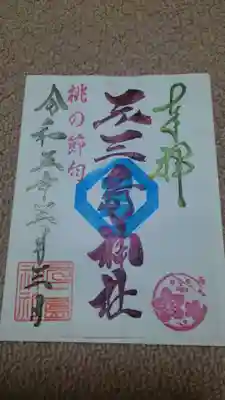 奉拝
元三島神社
桃の節句
令和五年三月三日